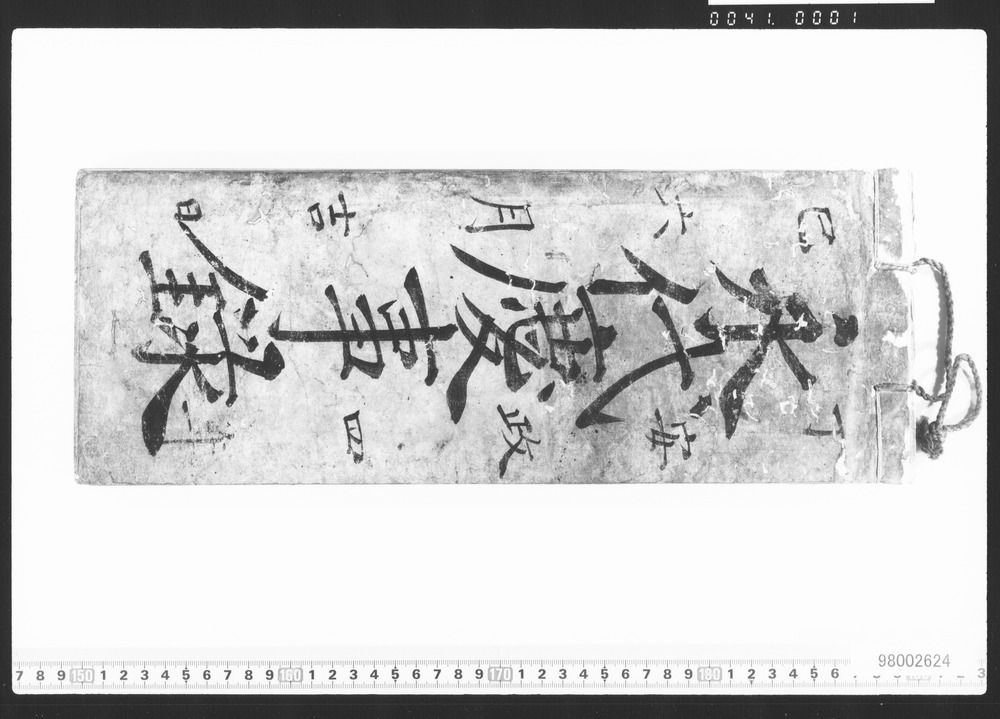 丁安政四年
永代慶事録
巳六月吉日
0041.0001
7 8 9 150 1 2 3 4 5 6 7 8 9 160 1 2 3 4 5 6 7 8 9 170 1 2 3 4 5 6 7 8 9 180 1 2 3 4 5 6
98002624